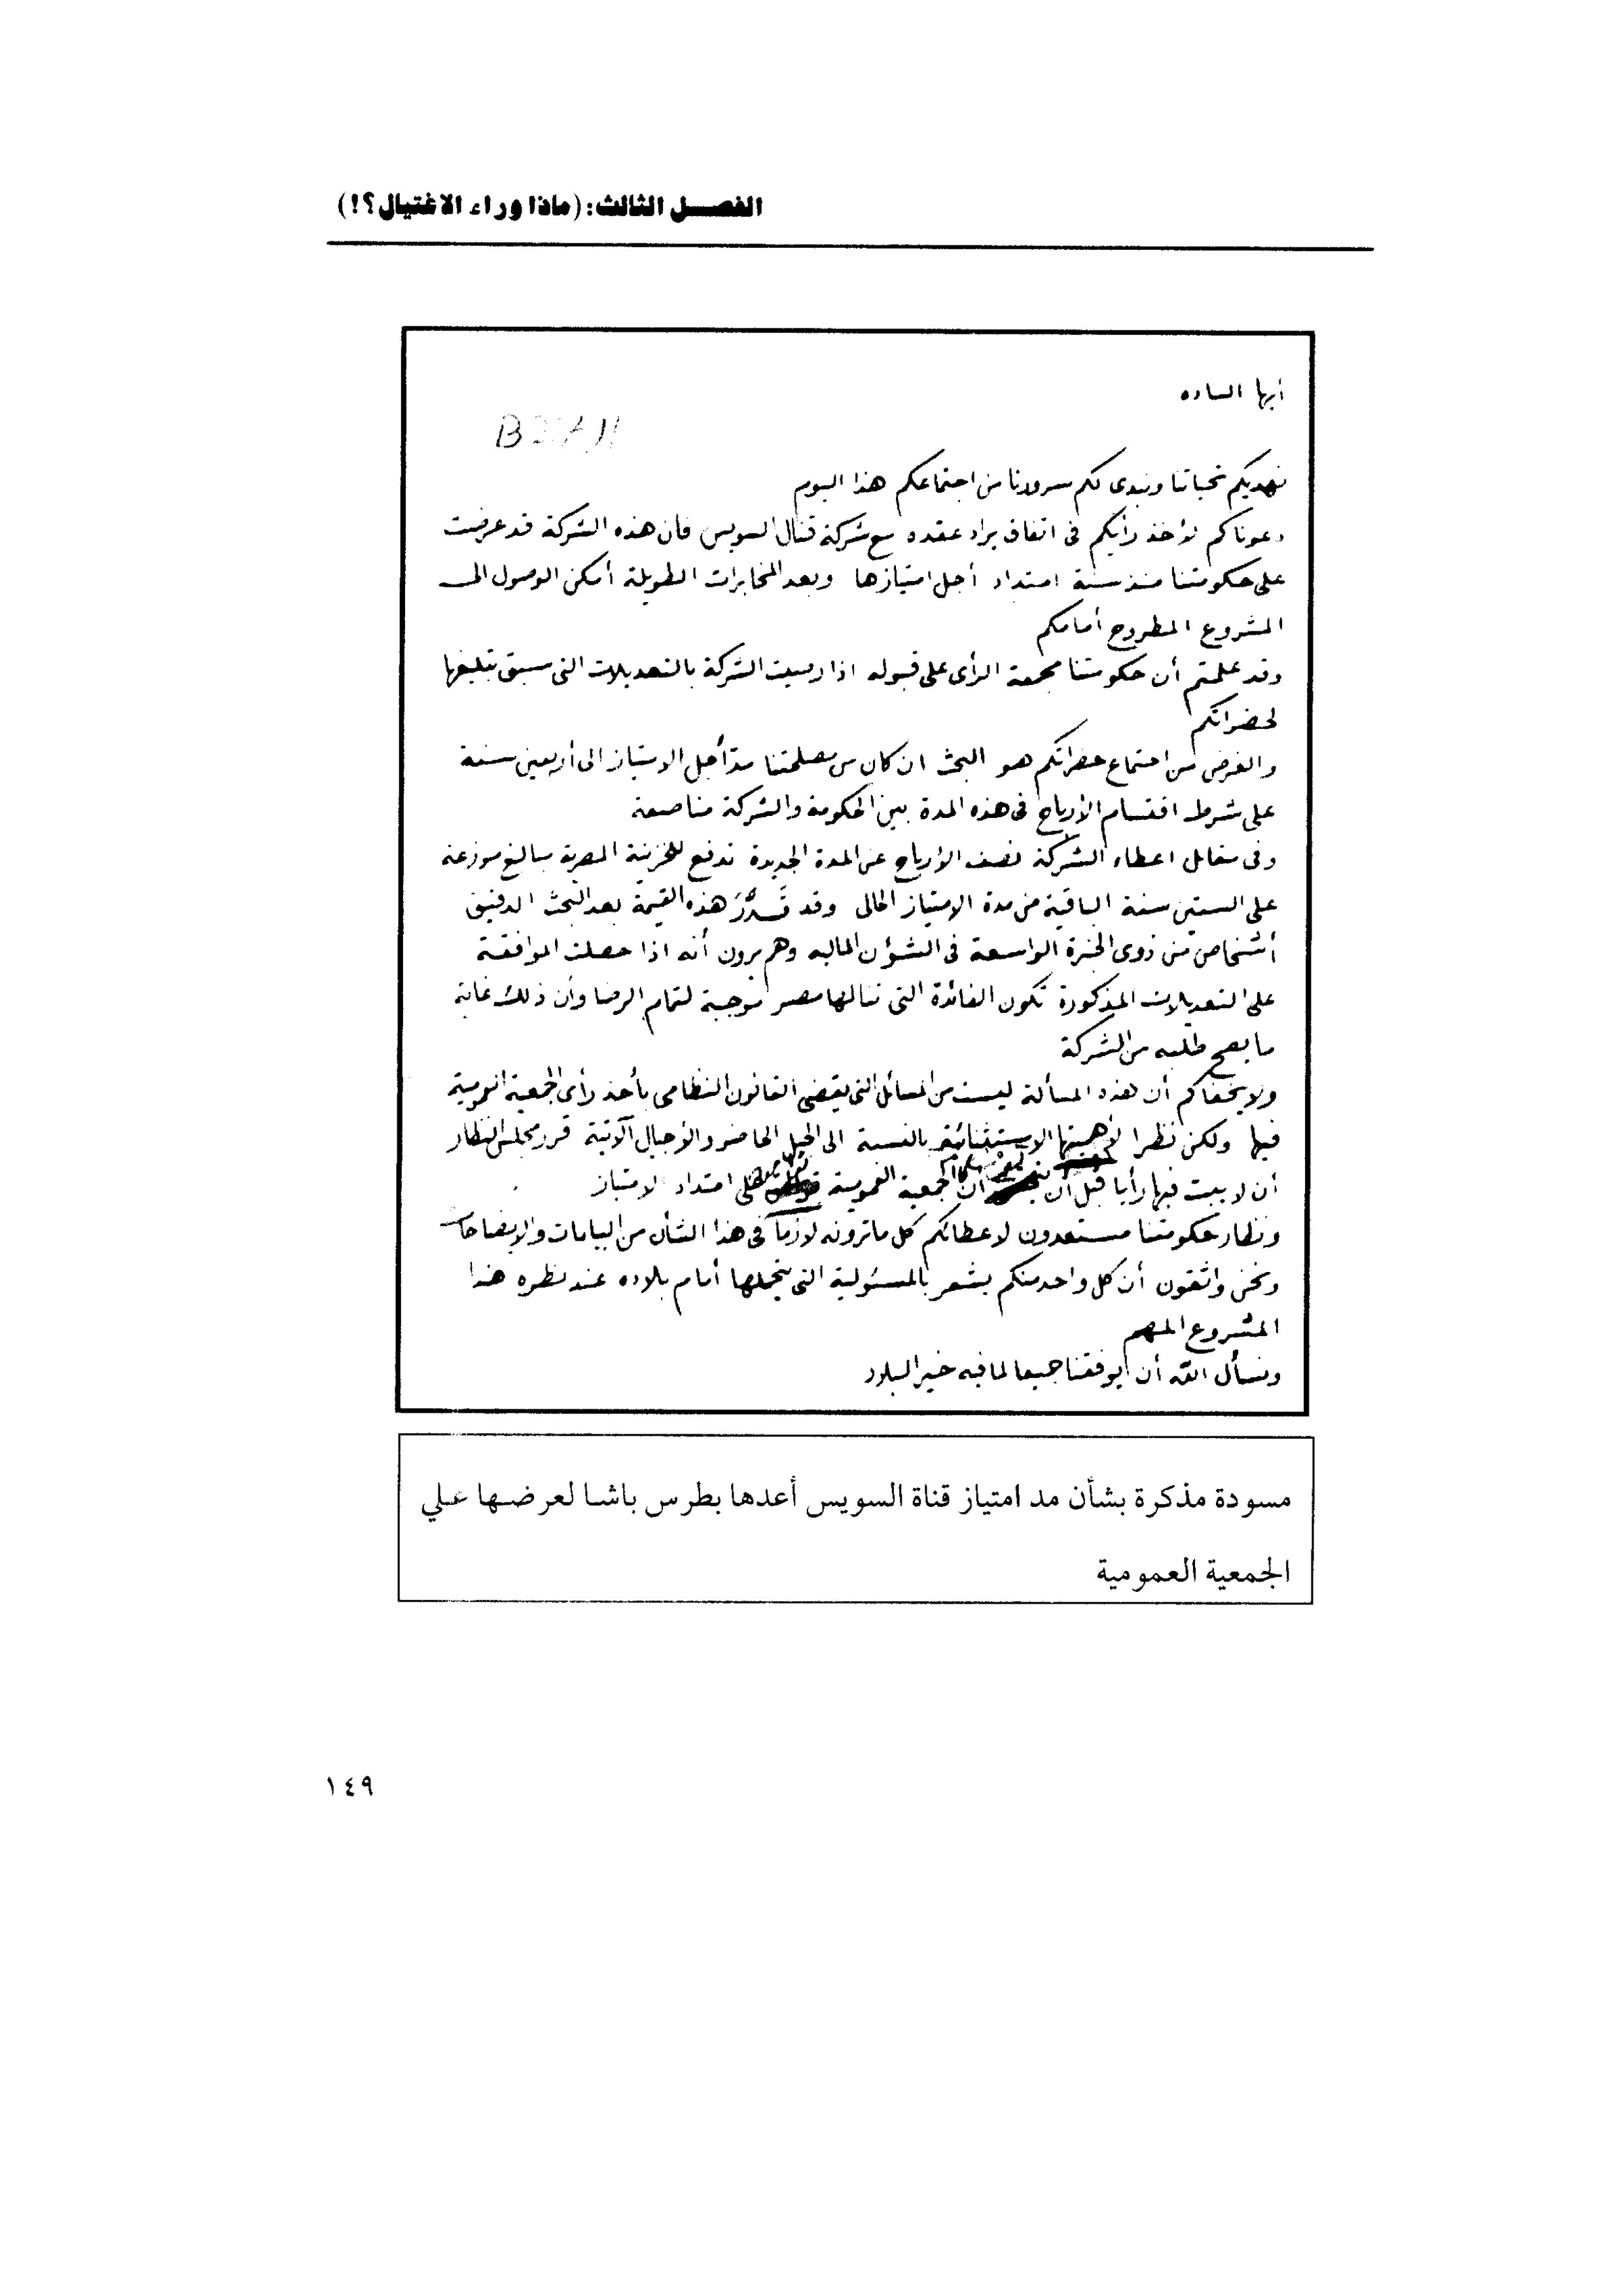 الفصل الثالث: (ماذا وراء الاغتيال؟!)
أيها الساده
نهديكم تحياتنا ونبدى لكم سرورنا من اجتماعكم هذا اليوم
دعوناكم لأخذ رأيكم فى اتفاق يراد عقده مع شركة قنال السويس فان هذه الشركة قد عرضت
على حكومتنا منذ سنة امتداد أجل امتيازها وبعد المخابرات الطويلة أمكن الوصول الى
المشروع المطروح أمامكم
وقد علمتم أن حكومتنا مجمعة الرأى على قبوله اذا رضيت الشركة بالتعديلات التى سبق تبليغها
لحضراتكم
والغرض من اجتماع حضراتكم هو البحث ان كان من مصلحتنا مد أجل الامتياز الى أربعين سنة
على شرط اقتسام الأرباح فى هذه المدة بين الحكومة والشركة مناصفة
وفى مقابل اعطاء الشركة نصف الأرباح عن المدة الجديدة تدفع للخزينة المصرية مبالغ موزعة
على الستين سنة الباقية من مدة الامتياز الحالى وقد قدّر هذه القيمة بعد البحث الدقيق
أشخاص من ذوى الخبرة الواسعة فى الشؤن الماليه وهم يرون أنه اذا حصلت الموافقة
على التعديلات المذكورة تكون الفائدة التى تنالها مصر موجبة لتمام الرضا وأن ذلك غاية
ما يصح طلبه من الشركة
ولا يخفاكم أن هذه المسألة ليست من المسائل التى يقضى القانون النظامى بأخذ رأى الجمعية العمومية
فيها ولكن نظرا لأهميتها الاستثنائية بالنسبة الى الجيل الحاضر والأجيال الآتية قرر مجلس النظار
أن لا يبت فيها رأيا قبل أن الجمعية العمومية على امتداد الامتياز
ونظار حكومتنا مستعدون لاعطائكم كل ما ترونه لازما فى هذا الشأن من البيانات والايضاحات
ونحن واثقون أن كل واحد منكم يشعر بالمسئولية التى يتحملها أمام بلاده عند نظره هذا
المشروع المهم
ونسأل الله أن يوفقنا جميعا لما فيه خير البلاد
مسودة مذكرة بشأن مد امتياز قناة السويس أعدها بطرس باشا لعرضها علي
الجمعية العمومية
١٤٩